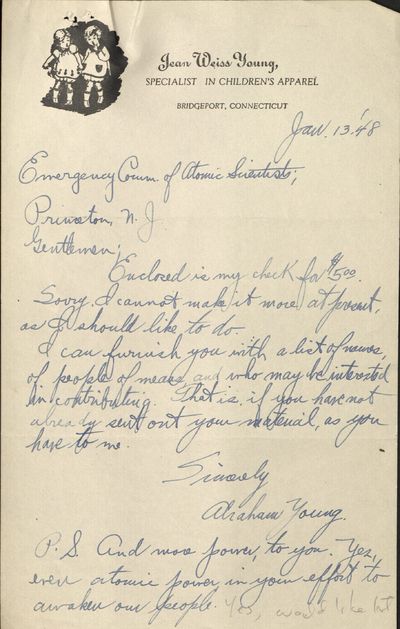 Jean Weiss Young,
SPECIALIST IN CHILDREN'S APPAREL
BRIDGEPORT, CONNECTICUT
Jan. 13, '48
Emergency Comm. of Atomic Scientists;
Princeton, N. J.
Gentlemen;
Enclosed is my check for $5.00.
Sorry I cannot make it more at present,
as I should like to do.
I can furnish you with a list of names,
of people of means and who may be interested
in contributing. That is, if you have not
already sent out your material, as you
have to me.
Sincerely
Abraham Young.
P. S. And more power, to you. Yes,
even atomic power in your effort to
awaken our people. Yes, would like list